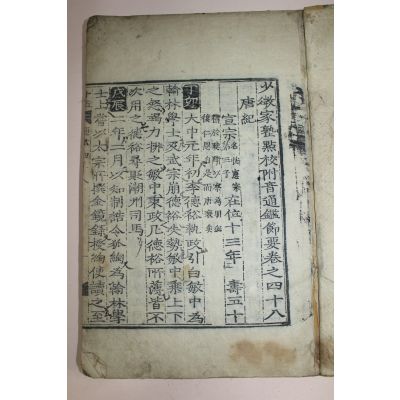 少微家塾點校附音通鑑節要卷之四十八
唐紀
宣宗 在位十三年 壽五十
丁卯 大中元年初李德裕執政引白敏中爲
翰林學士及武宗崩德裕失勢敏中乘上下
之怒竭力排之敏中秉政凡德裕所薄皆不
次用之德裕尋貶潮州司馬
戊辰 二年二月以知制誥令狐綯爲翰林學
士上嘗以太宗所撰金鏡錄授綯使讀之至